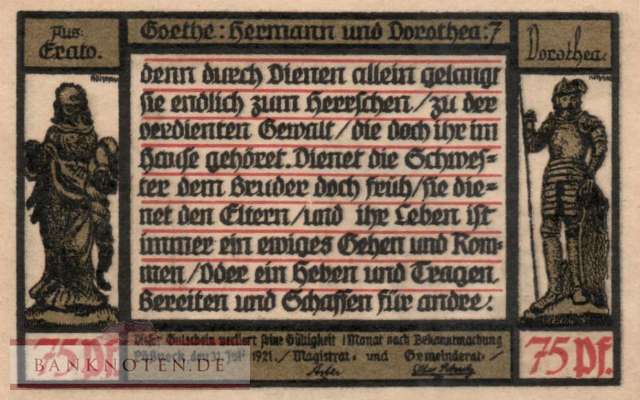 Aus:
Erato.
Goethe: Hermann und Dorothea: 7
Dorothea:
denn durch Dienen allein gelangt
sie endlich zum Herrschen/zu der
verdienten Gewalt/die doch ihr im
Hause gehöret. Dienet die Schwes=
ter dem Bruder doch früh/sie die=
net den Eltern/und ihr Leben ist
immer ein ewiges Gehen und Kom=
men/Oder ein Heben und Tragen,
Bereiten und Schaffen für andre:
75 Pf.
Dieser Gutschein verliert seine Gültigkeit 1 Monat nach Bekanntmachung
Pößneck, den 31. Juli 1921. / Magistrat= und Gemeinderat=/
75 Pf.
BANKNOTEN.DE